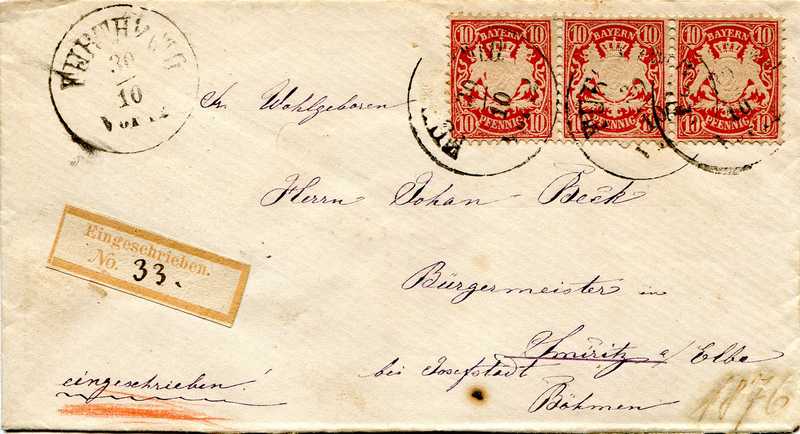 30
10
10 BAYERN 10
10 PFENNIG 10
10 BAYERN 10
10 PFENNIG 10
10 BAYERN 10
10 PFENNIG 10
Wohlgeboren
Herrn Johan Beck
Eingeschrieben.
No. 33.
Bürgermeister in
Smiritz a/ Elbe
bei Josefstadt
eingeschrieben!
Böhmen
1876